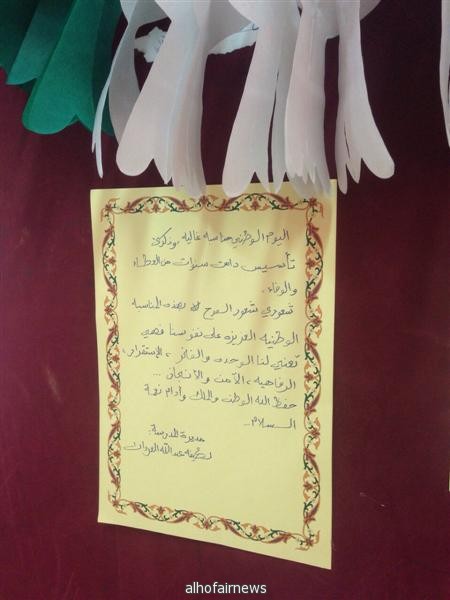 اليوم الوطني مناسبة غالية وذكرى
تأسيس دامت سنوات من العطاء
والوفاء.
شعوري شعور السموح بهذه المناسبة
الوطنية العزيزة على نفوسنا فهي
تعني لنا الوحده والفخر، الإستقرار،
الرفاهية، الأمن والأنجاز ...
حفظ الله الوطن والملك وأدام نعمة
السلام..
مديرة المدرسة:
عبدالله
alhofairnews